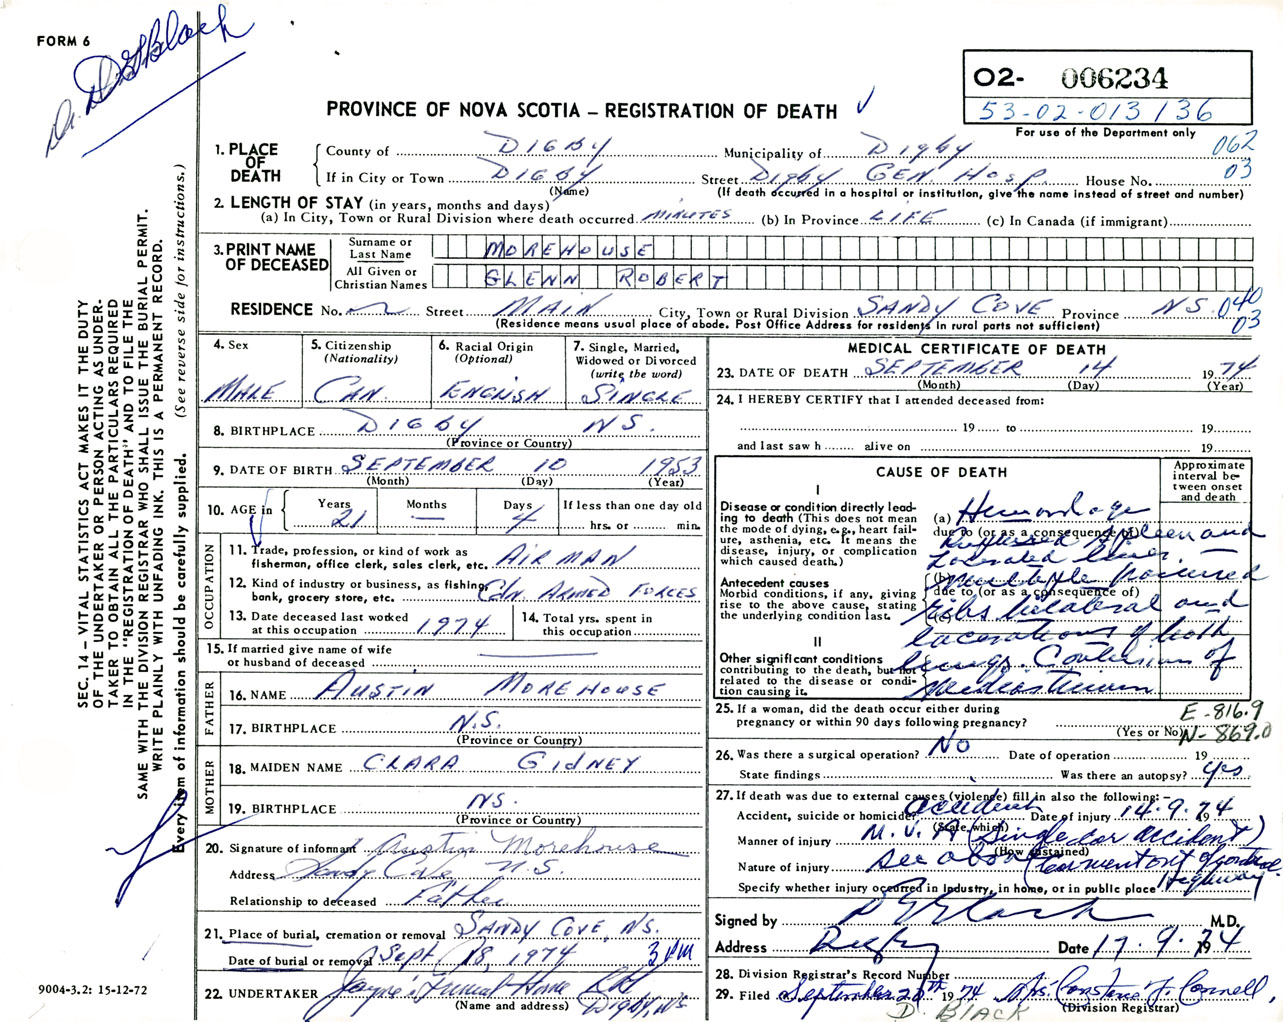 FORM 6
Dr. D G Black
02- 006234
53-02-013136
For use of the Department only
PROVINCE OF NOVA SCOTIA – REGISTRATION OF DEATH
1. PLACE OF DEATH
County of DIGBY Municipality of DIGBY 062
If in City or Town DIGBY Street DIGBY GEN HOSP. House No. 03
(Name) (If death occurred in a hospital or institution, give the name instead of street and number)
2. LENGTH OF STAY (in years, months and days)
(a) In City, Town or Rural Division where death occurred MINUTES (b) In Province LIFE (c) In Canada (if immigrant)
3. PRINT NAME OF DECEASED
Surname or Last Name MOREHOUSE
All Given or Christian Names GLENN ROBERT
RESIDENCE No. Street MAIN City, Town or Rural Division SANDY COVE Province NS. 040
(Residence means usual place of abode. Post Office Address for residents in rural parts not sufficient) 03
4. Sex MALE
5. Citizenship (Nationality) CAN.
6. Racial Origin (Optional) ENGLISH
7. Single, Married, Widowed or Divorced (write the word) SINGLE
8. BIRTHPLACE DIGBY NS.
(Province or Country)
9. DATE OF BIRTH SEPTEMBER 10 1953
(Month) (Day) (Year)
10. AGE in Years 21 Months — Days 4 If less than one day old
hrs. or min.
OCCUPATION
11. Trade, profession, or kind of work as fisherman, office clerk, sales clerk, etc. AIRMAN
12. Kind of industry or business, as fishing, bank, grocery store, etc. Cdn. ARMED FORCES
13. Date deceased last worked at this occupation 1974
14. Total yrs. spent in this occupation
15. If married give name of wife or husband of deceased
FATHER
16. NAME AUSTIN MOREHOUSE
17. BIRTHPLACE N.S.
(Province or Country)
MOTHER
18. MAIDEN NAME CLARA GIDNEY
19. BIRTHPLACE NS.
(Province or Country)
20. Signature of informant Austin Morehouse
Address Sandy Cove N.S.
Relationship to deceased Father
21. Place of burial, cremation or removal SANDY COVE, NS.
Date of burial or removal Sept 18, 1974 3 PM
22. UNDERTAKER Jayne's Funeral Home
(Name and address) Digby, NS
MEDICAL CERTIFICATE OF DEATH
23. DATE OF DEATH SEPTEMBER 14 1974
(Month) (Day) (Year)
24. I HEREBY CERTIFY that I attended deceased from:
19 to 19
and last saw h alive on 19
CAUSE OF DEATH
Approximate interval between onset and death
I
Disease or condition directly leading to death (This does not mean the mode of dying, e.g., heart failure, asthenia, etc. It means the disease, injury, or complication which caused death.)
(a) Hemorrhage
due to (or as a consequence of)
Ruptured spleen and
Lacerated liver. —
Antecedent causes
Morbid conditions, if any, giving rise to the above cause, stating the underlying condition last.
(b) Multiple fractured
due to (or as a consequence of)
ribs bilateral and
(c)
lacerations of both
II
Other significant conditions contributing to the death, but not related to the disease or condition causing it.
lungs. Contusion of
mediastinum
25. If a woman, did the death occur either during pregnancy or within 90 days following pregnancy?
(Yes or No)
E-816.9
N-869.0
26. Was there a surgical operation? No Date of operation 19
State findings Was there an autopsy? Yes
27. If death was due to external causes (violence) fill in also the following:–
Accident, suicide or homicide? accident Date of injury 14.9.1974
(State which)
Manner of injury M.V.A (single car accident)
(How sustained)
Nature of injury see above (car went out of control. Highway
Specify whether injury occurred in industry, in home, or in public place
Signed by D G Black M.D.
Address Digby Date 17.9.1974
28. Division Registrar's Record Number
29. Filed September 20th 1974 Mrs. Constance F. Connell,
(Division Registrar)
D. BLACK
SEC. 14 – VITAL STATISTICS ACT MAKES IT THE DUTY
OF THE UNDERTAKER OR PERSON ACTING AS UNDER-
TAKER TO OBTAIN ALL THE PARTICULARS REQUIRED
IN THE "REGISTRATION OF DEATH" AND TO FILE THE
SAME WITH THE DIVISION REGISTRAR WHO SHALL ISSUE THE BURIAL PERMIT.
WRITE PLAINLY WITH UNFADING INK. THIS IS A PERMANENT RECORD.
Every item of information should be carefully supplied. (See reverse side for instructions.)
9004-3.2: 15-12-72